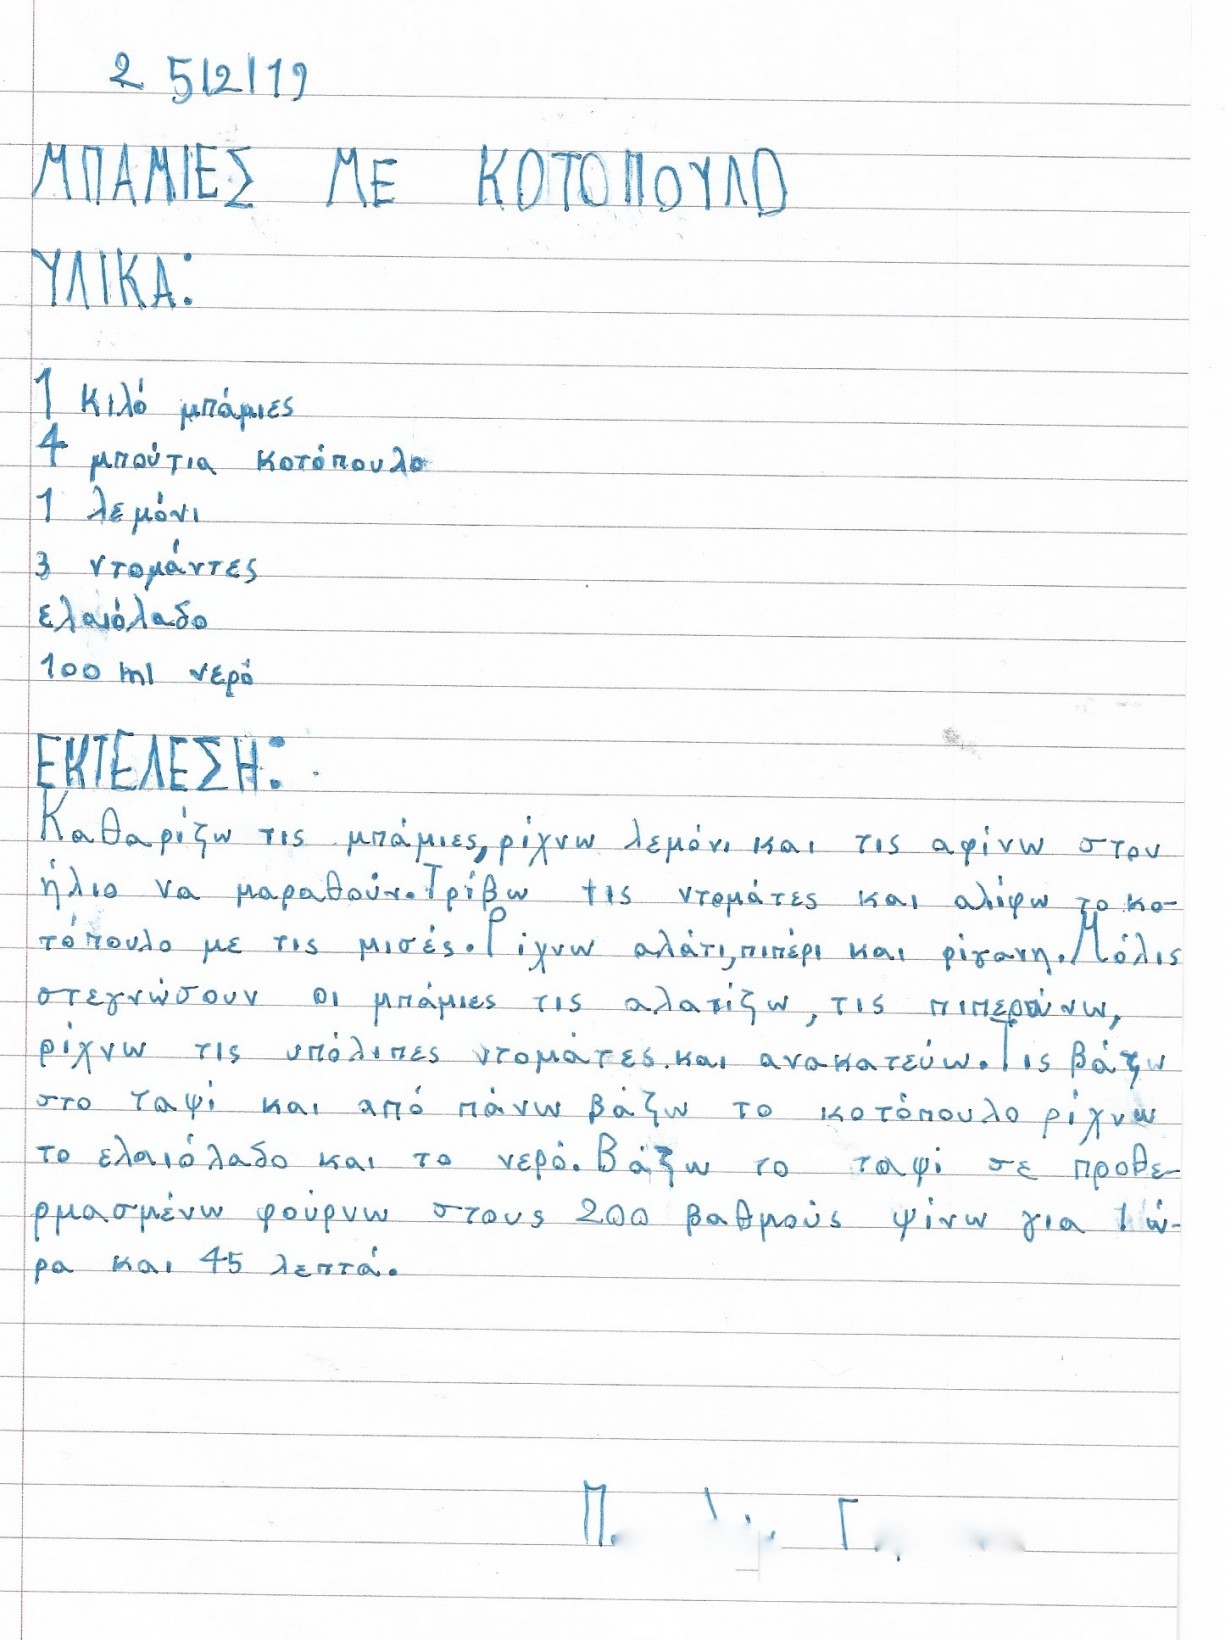 25/2/19
ΜΠΑΜΙΕΣ ΜΕ ΚΟΤΟΠΟΥΛΟ
ΥΛΙΚΑ:
1 κιλό μπάμιες
4 μπούτια κοτόπουλο
1 λεμόνι
3 ντομάντες
ελαιόλαδο
100 ml νερό
ΕΚΤΕΛΕΣΗ:
Καθαρίζω τις μπάμιες, ρίχνω λεμόνι και τις αφίνω στον
ήλιο να μαραθούν. Τρίβω τις ντομάτες και αλίφω το κο-
τόπουλο με τις μισές. Ρίχνω αλάτι, πιπέρι και ρίγανη. Μόλις
στεγνώσουν οι μπάμιες τις αλατίζω, τις πιπερώνω,
ρίχνω τις υπόλιπες ντομάτες και ανακατεύω. Τις βάζω
στο ταψί και από πάνω βάζω το κοτόπουλο ρίχνω
το ελαιόλαδο και το νερό. Βάζω το ταψί σε προθε-
ρμασμένω φούρνω στους 200 βαθμούς ψίνω για 1 ώ-
ρα και 45 λεπτά.